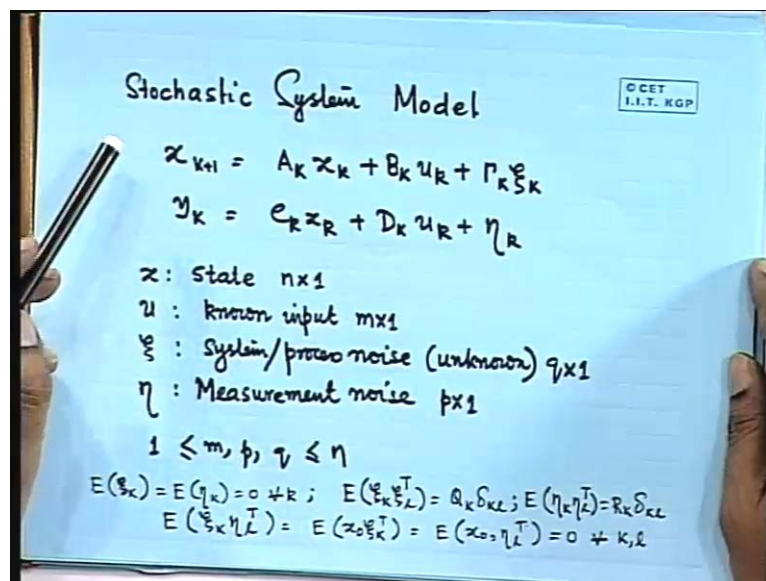 Stochastic System Model
© CET
I.I.T. KGP
x_{k+1} = A_k x_k + B_k u_k + Γ_k ξ_k
y_k = C_k x_k + D_k u_k + η_k
x : State n×1
u : known input m×1
ξ : System/process noise (unknown) q×1
η : Measurement noise p×1
1 ≤ m, p, q ≤ n
E(ξ_k) = E(η_k) = 0 ∀k ; E(ξ_k ξ_l^T) = Q_k δ_{kl} ; E(η_k η_l^T) = R_k δ_{kl}
E(ξ_k η_l^T) = E(x_0 ξ_k^T) = E(x_0, η_l^T) = 0 ∀ k,l